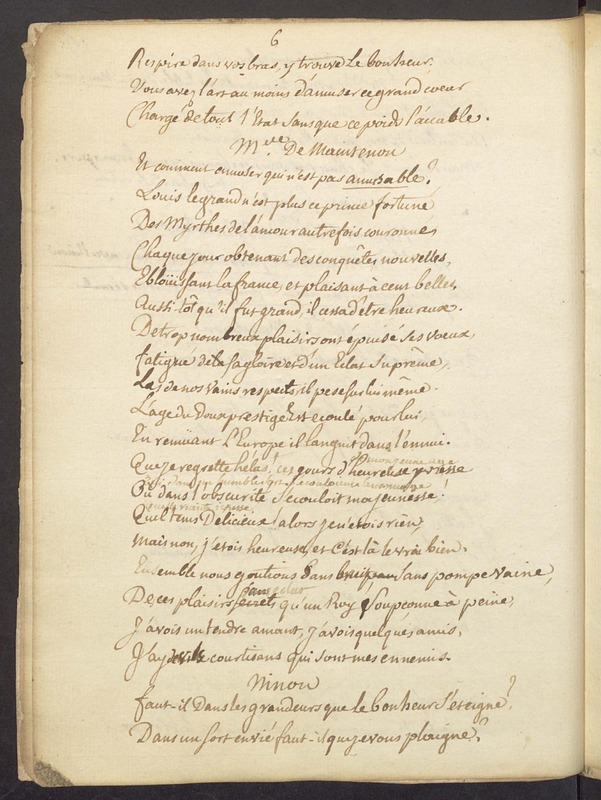 6
Respire dans vos bras, y trouve le bonheur.
Vous avez l'art au moins d'amuser ce grand coeur
Chargé de tout l'Etat sans que ce poids l'accable.
M.elle De Maintenon
Et comment amuser qui n'est pas amusable?
Louis le grand n'est plus ce prince fortuné
Des Myrthes de l'amour autrefois couronné,
Chaque jour obtenant des conquêtes nouvelles,
Eblouissant la france, et plaisant à cent belles,
Aussi-tôt qu'il fut grand, il cessa d'être heureux.
De trop nombreux plaisirs ont épuisé ses voeux,
fatigué de sa gloire et d'un Eclat Suprême,
Las de nos vains respects, il pese sur lui même.
L'age du doux prestige Est ecoulé pour lui,
En remüant L'Europe il languit dans l'ennui.
Que je regrette helas! ces jours d'heureuse
Où dans l'obscurité s'ecouloit ma jeunesse!
Quel tems Delicieux! alors je n'etois rien,
Mais non, j'etois heureuse, et c'est là le vrai bien.
Ensemble nous goutions sans bruit, sans pompe vaine,
De ces plaisirs secrets qu'un Roy Soupçonne à peine,
J'avois un tendre amant, j'avois quelques amis,
J'ay de vils courtisans qui sont mes ennemis.
Ninon
faut-il Dans les grandeurs que le bonheur s'eteigne?
Dans un sort envié faut-il que je vous plaigne?